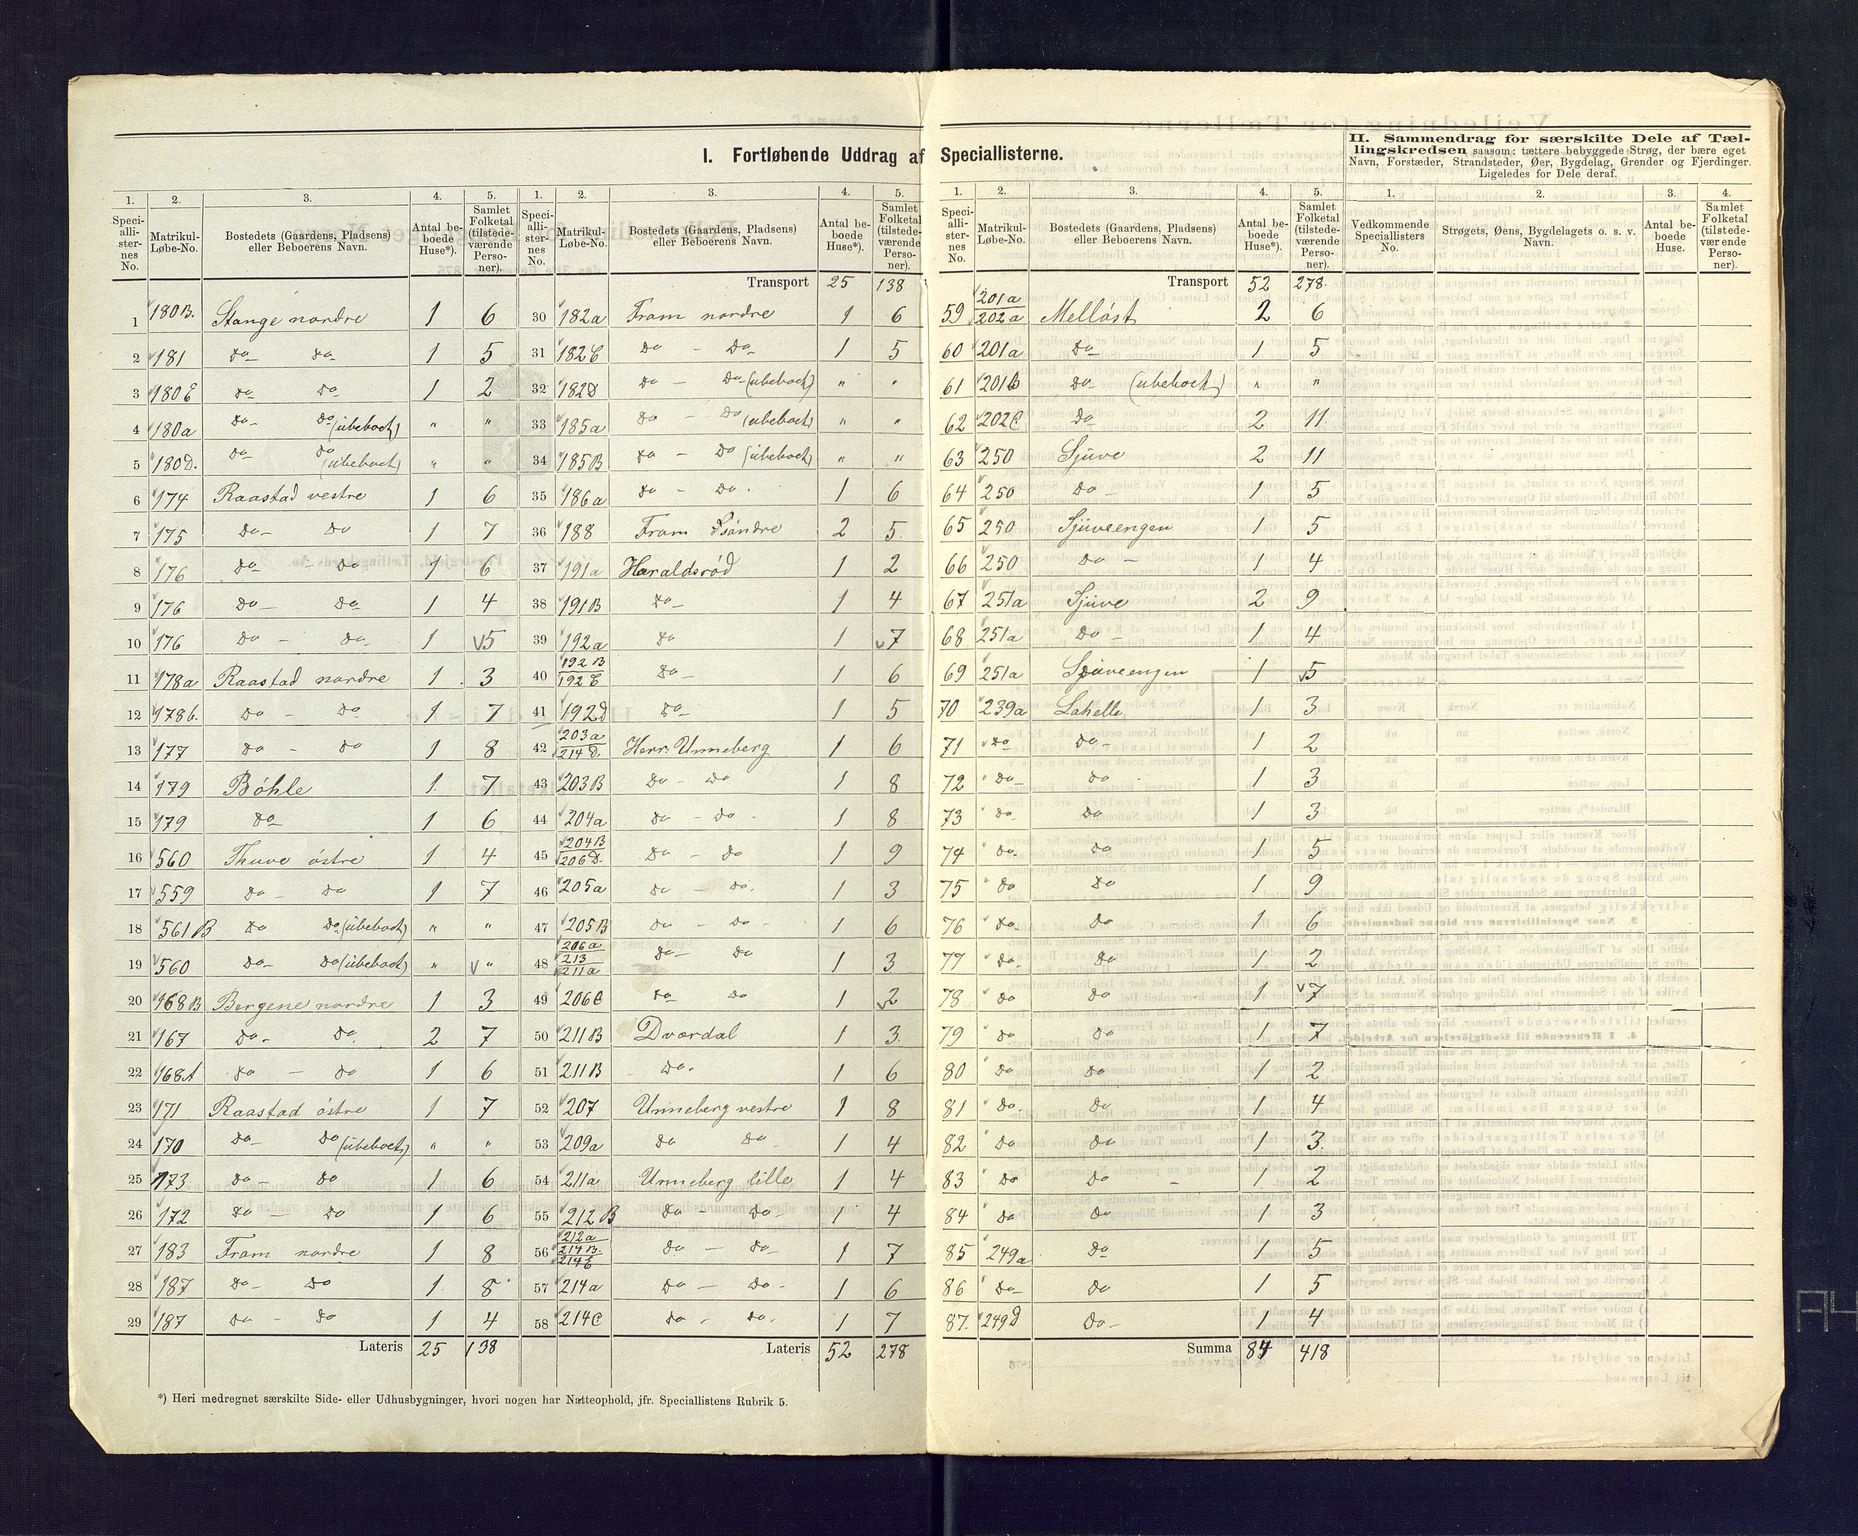 I. Fortløbende Uddrag af Speciallisterne.
II. Sammendrag for særskilte Dele af Tællingskredsen saasom: tættere bebyggede Strøg, der bære eget
Navn, Forstæder, Strandsteder, Øer, Bygdelag, Grender og Fjerdinger.
Ligeledes for Dele deraf.
1. 2. 3. 4. 5.
Speciallisternes No. Matrikul-Løbe-No. Bostedets (Gaardens, Pladsens) eller Beboerens Navn. Antal beboede Huse*). Samlet Folketal (tilstedeværende Personer).
1 180B. Stange nordre 1 6
2 181 do do 1 5
3 180C do do 1 2
4 180a do do (ubeboet) " "
5 180D. do do (ubeboet) " "
6 174 Raastad vestre 1 6
7 175 do do 1 7
8 176 do do 1 6
9 176 do do 1 4
10 176 do do 1 5
11 178a Raastad nordre 1 3
12 178b. do do 1 7
13 177 do do 1 8
14 179 Bøhle 1 7
15 179 do 1 6
16 560 Thuve østre 1 4
17 559 do do 1 7
18 561B do do (ubeboet) " "
19 560 do do (ubeboet) " "
20 168B Bergene nordre 1 3
21 167 do do 2 7
22 168A do do 1 6
23 171 Raastad østre 1 7
24 170 do do (ubeboet) " "
25 173 do do 1 6
26 172 do do 1 6
27 183 Fram nordre 1 8
28 187 do do 1 8
29 187 do do 1 4
Lateris 25 138
1. 2. 3. 4. 5.
Speciallisternes No. Matrikul-Løbe-No. Bostedets (Gaardens, Pladsens) eller Beboerens Navn. Antal beboede Huse*). Samlet Folketal (tilstedeværende Personer).
Transport 25 138
30 182a Fram nordre 1 6
31 182C do - do 1 5
32 182D do - do (ubeboet) " "
33 185a do - do (ubeboet) " "
34 185B do - do (ubeboet) " "
35 186a do - do. 1 6
36 188 Fram Søndre 2 5
37 191a Haraldsrød 1 2
38 191B do 1 4
39 192a do 1 7
40 192B 192C do 1 6
41 192D do 1 5
42 203a 214D. Herr. Unneberg 1 6
43 203B do - do 1 8
44 204a do - do 1 8
45 204B 206D. do - do 1 9
46 205a do - do. 1 3
47 205B do - do 1 6
48 206a 213 211a do - do 1 3
49 206C do do 1 2
50 211B Dværdal 1 3
51 211B do. 1 6
52 207 Unneberg vestre 1 8
53 209a do do 1 4
54 211a Unneberg lille 1 4
55 212B do - do 1 4
56 212a 214B. 214E do - do 1 7
57 214a do - do 1 6
58 214C do - do. 1 7
Lateris 52 278
1. 2. 3. 4. 5.
Speciallisternes No. Matrikul-Løbe-No. Bostedets (Gaardens, Pladsens) eller Beboerens Navn. Antal beboede Huse*). Samlet Folketal (tilstedeværende Personer).
Transport 52 278.
59 201a 202a Melløst 2 6
60 201a do 1 5
61 201B do (ubeboet) " "
62 202C do 2 11
63 250 Sjuve 2 11
64 250 do 1 5
65 250 Sjuveengen 1 5
66 250 do 1 4
67 251a Sjuve 2 9
68 251a do 1 4
69 251a Sjuveengen 1 5
70 239a Lahelle 1 3
71 do do 1 2
72 do do 1 3
73 do do 1 3
74 do. do 1 5
75 do do 1 9
76 do. do 1 6
77 do. do 1 2
78 do do 1 7
79 do do 1 7
80 do do 1 2
81 do. do 1 4
82 do do 1 3.
83 do do 1 2
84 do do 1 3
85 249a do 1 5
86 do do 1 5
87. 249D do 1 4
Summa 84 418
1. 2. 3. 4.
Vedkommende Speciallisters No. Strøgets, Øens, Bygdelagets o. s. v. Navn. Antal beboede Huse. Samlet Folketal (tilstedeværende Personer).
*) Heri medregnet særskilte Side- eller Udhusbygninger, hvori nogen har Natteophold, jfr. Speciallistens Rubrik 5.